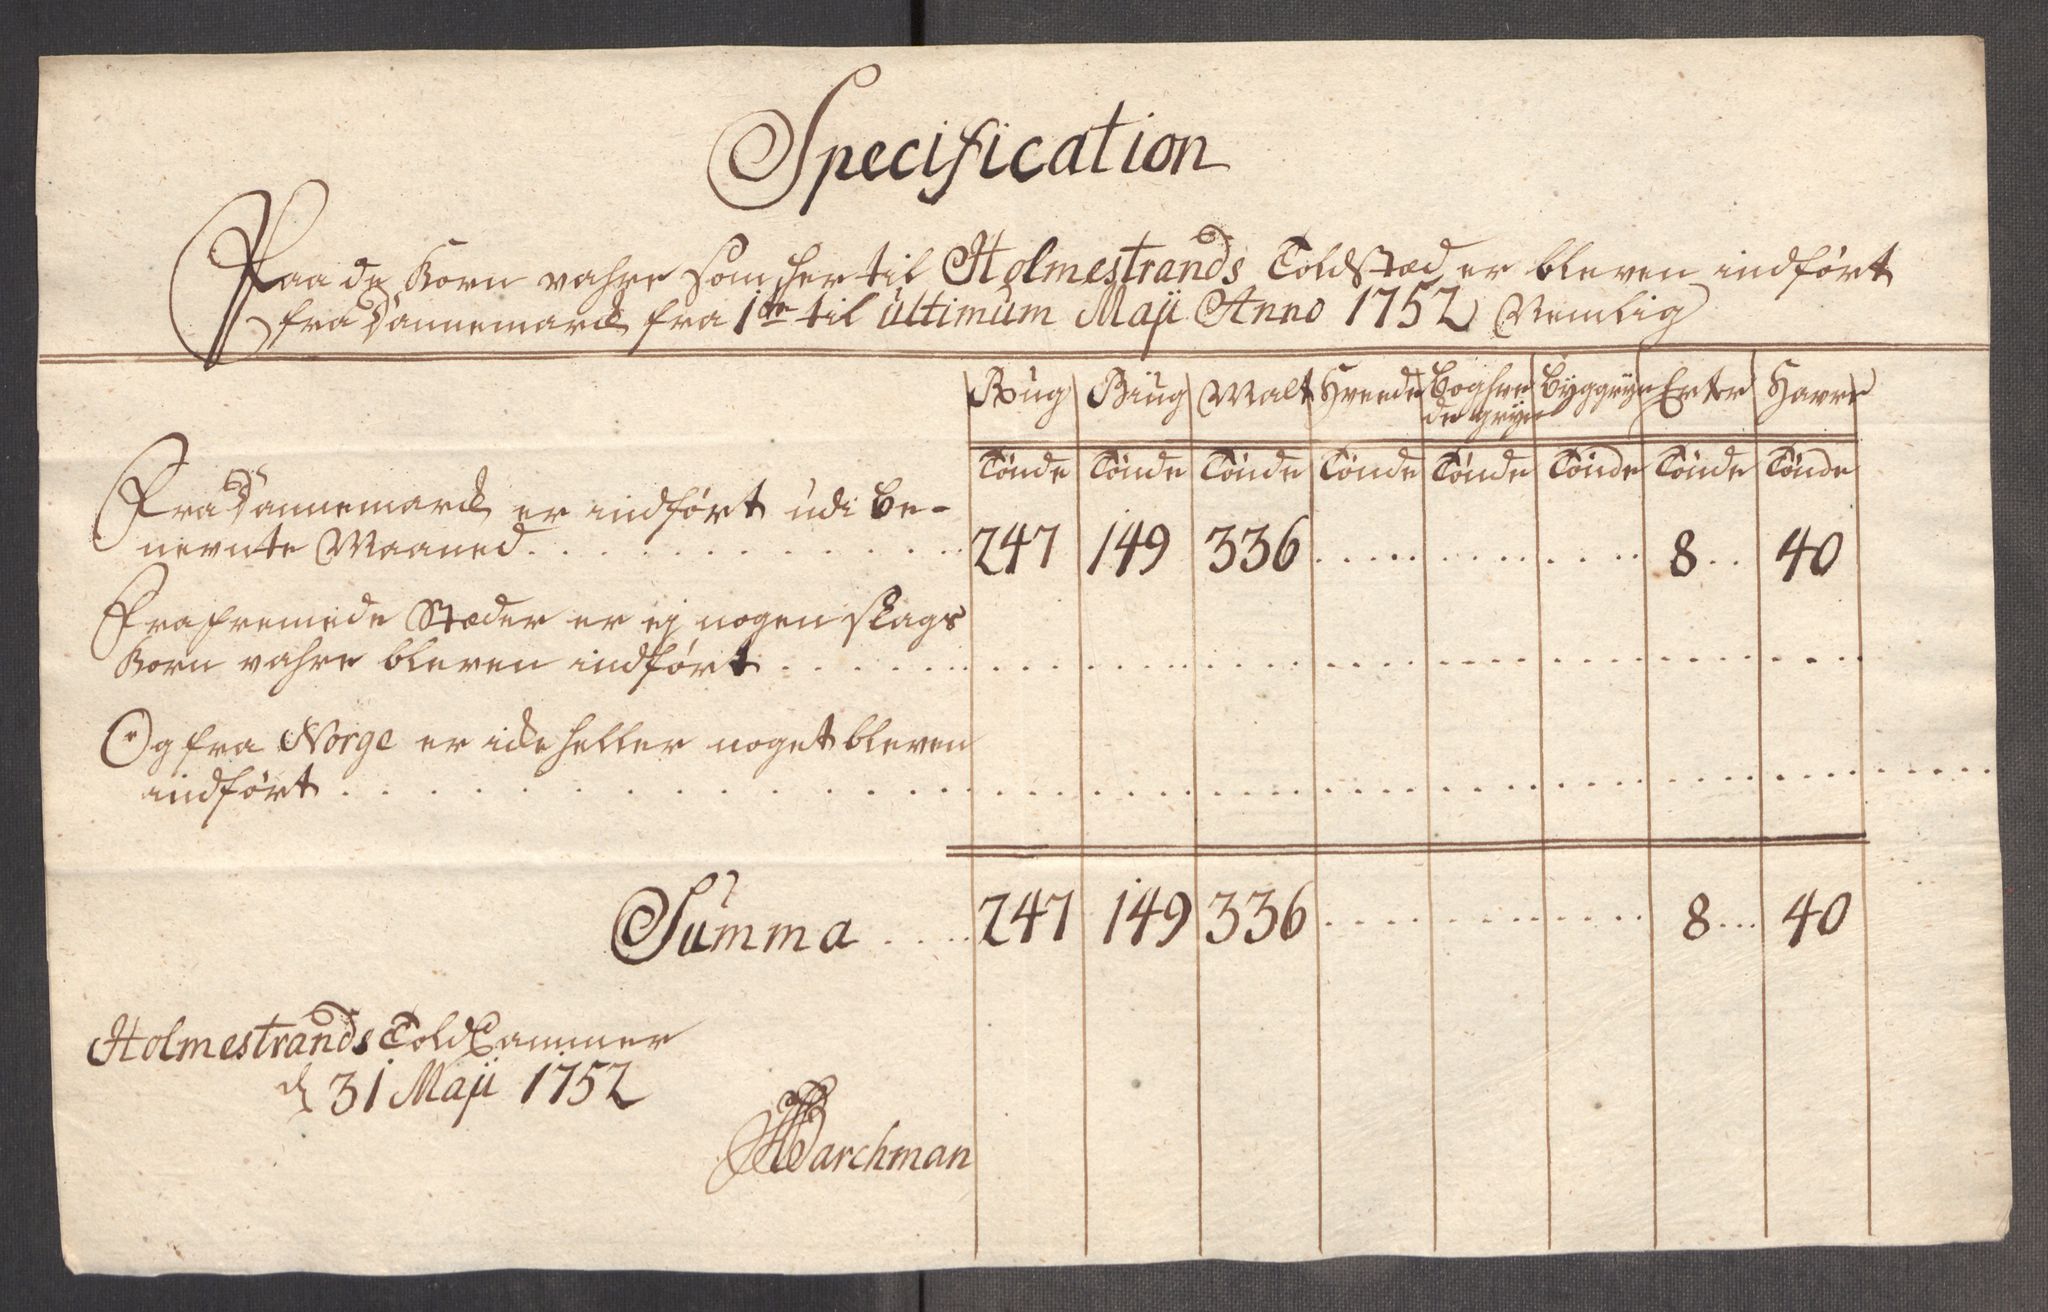 Specification
Paa de Korn vahre som her til Holmestrands Toldstæd er bleven indført
fra Dannemarck fra 1te til ultimum Maji Anno 1752 Nemlig
Rug Biug Malt Hvede Boghve Byggryn Erter Havre
de gryn
Tønde Tønde Tønde Tønde Tønde Tønde Tønde Tønde
Fra Dannemarck er indført udi be-
nevnte Maaned . . . . . . . . . . 247 149 336 . . . . . . . . . . 8 . . 40
Fra fremede Stæder er ej nogen slags
Korn vahre bleven indført . . . . . . . . . . . . . . . . . . . .
Og fra Norge er icke heller noget bleven
indført . . . . . . . . . . . . . . . . . . . . . . . . . . . . . .
Summa . . . . 247 149 336 . . . . . . . . . . 8 . . . 40
Holmestrands Told Cammer
d 31 Maji 1752
Barchman